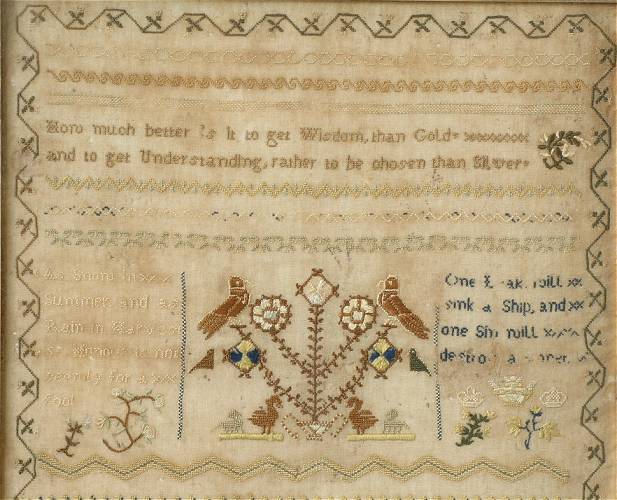 How much better is it to get Wisdom, than Gold
and to get Understanding, rather to be chosen than Silver
As Snow in
Summer and as
Rain in Harvest
So
seemly for a
Fool
One Leak will
sink a Ship, and
one Sin will
destroy a Sinner